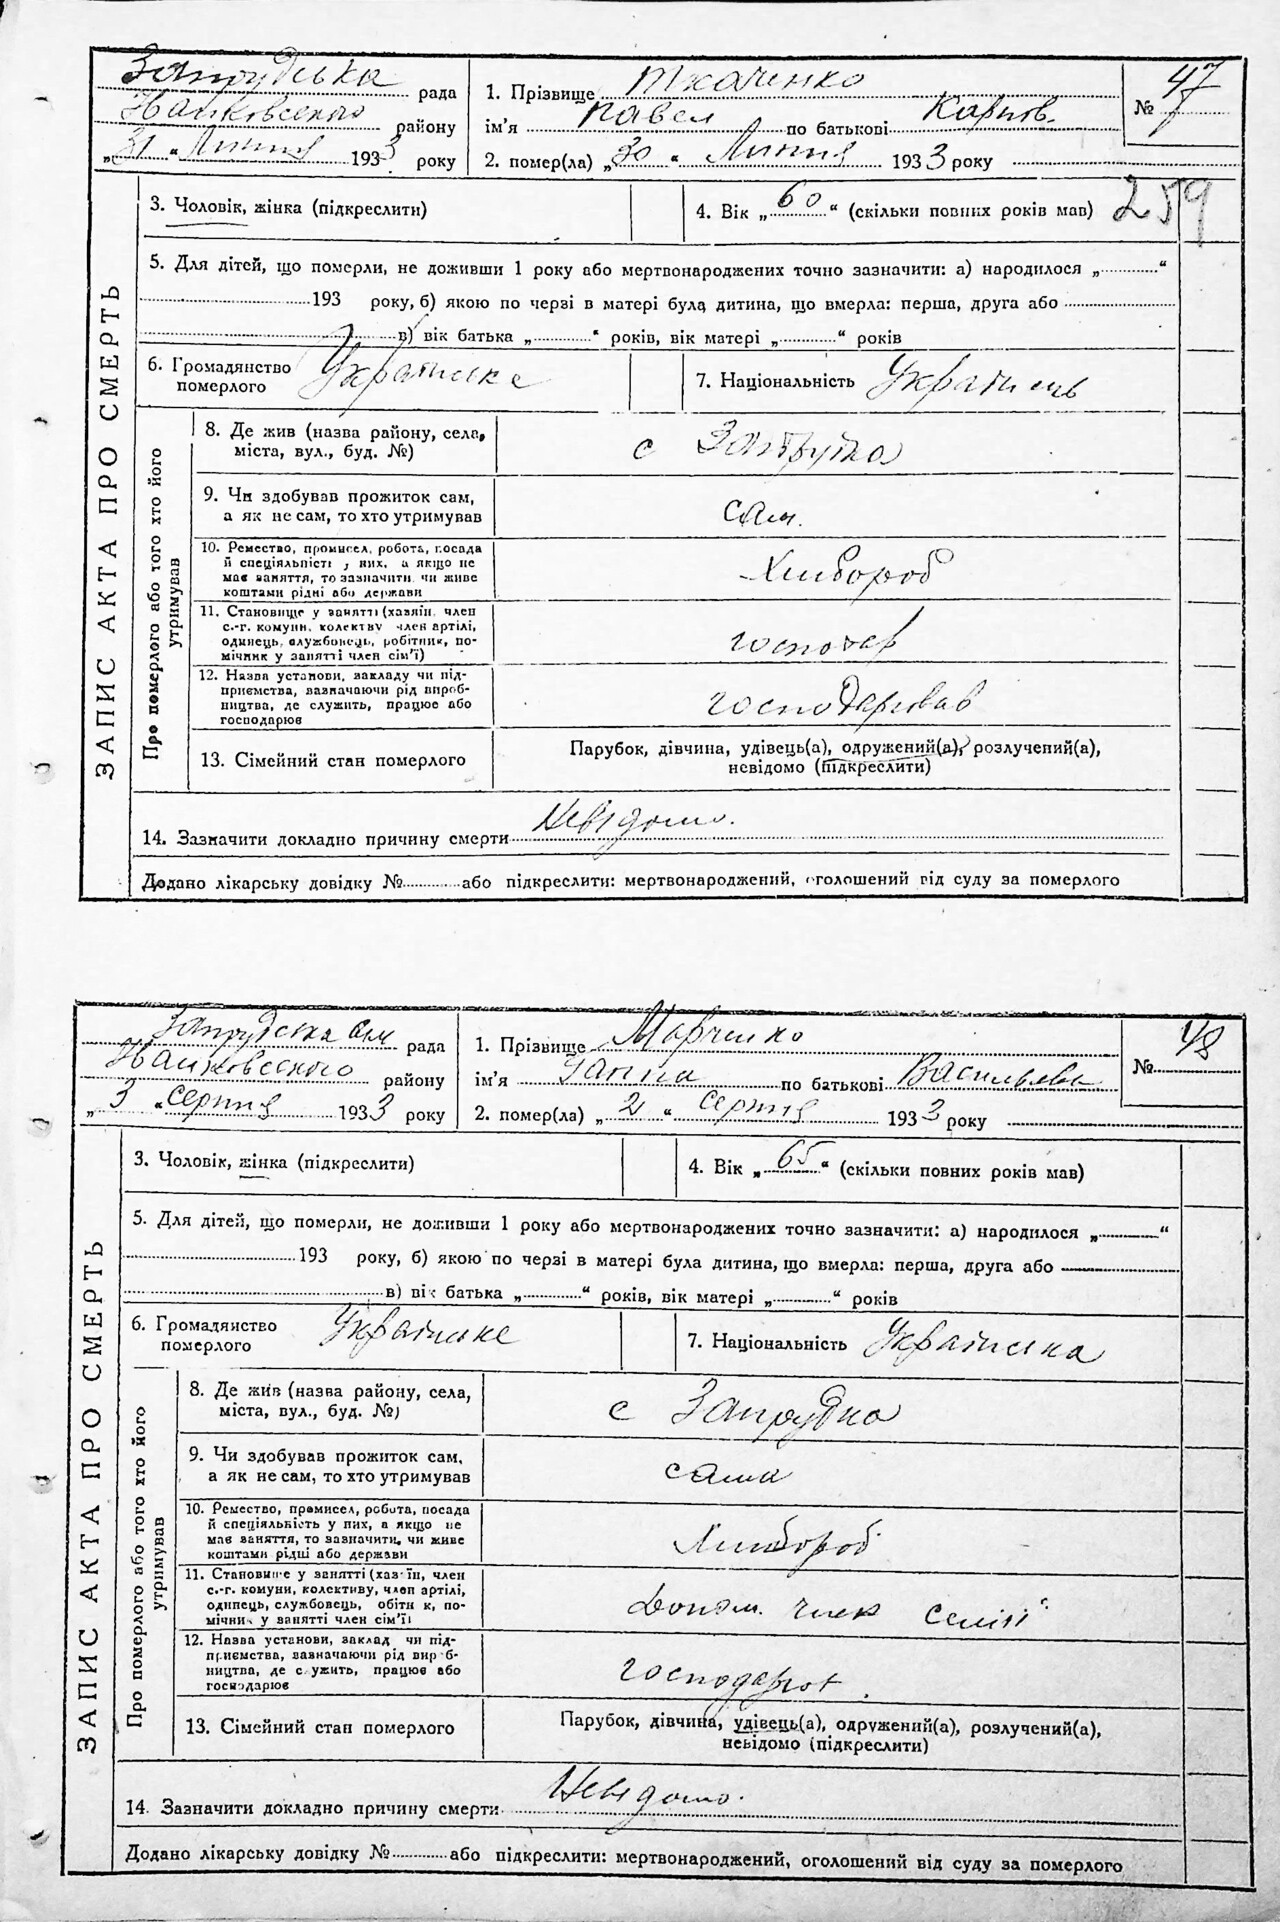 Запрудська рада
району
„31 “ Липня 1933 року
1. Прізвище Ткаченко
ім'я Павел по батькові Карпов.
2. помер(ла) „30 “ Липня 1933 року
№ 47
3. Чоловік, жінка (підкреслити)
4. Вік „ 60 “ (скільки повних років мав)
259
5. Для дітей, що померли, не доживши 1 року або мертвонароджених точно зазначити: а) народилося „ “
193 року, б) якою по черзі в матері була дитина, що вмерла: перша, друга або
в) вік батька „ “ років, вік матері „ “ років
6. Громадянство
померлого
Українське
7. Національність Українець
ЗАПИС АКТА ПРО СМЕРТЬ
Про померлого або того хто його
утримував
8. Де жив (назва району, села,
міста, вул., буд. №)
с Запрудка
9. Чи здобував прожиток сам,
а як не сам, то хто утримував
сам.
10. Ремество, промисел, робота, посада
й спеціяльність у них, а якщо не
має заняття, то зазначити, чи живе
коштами рідні або держави
Хлибороб
11. Становище у занятті (хазяїн, член
с.-г. комуни, колективу член артілі,
одинець, службовець, робітник, по-
мічник у занятті член сім'ї)
господар
12. Назва установи, закладу чи під-
приємства, зазначаючи рід вироб-
ництва, де служить, працює або
господарює
господарював
13. Сімейний стан померлого
Парубок, дівчина, удівець(а), одружений(а), розлучений(а),
невідомо (підкреслити)
14. Зазначити докладно причину смерти Невідомо.
Додано лікарську довідку № або підкреслити: мертвонароджений, оголошений від суду за померлого
Запрудська рада
району
„ 3 “ серпня 1933 року
1. Прізвище Марченко
ім'я Ганна по батькові Васильевн
2. помер(ла) „ 2 “ серпня 1933 року
№ 48
3. Чоловік, жінка (підкреслити)
4. Вік „ 65 “ (скільки повних років мав)
5. Для дітей, що померли, не доживши 1 року або мертвонароджених точно зазначити: а) народилося „ “
193 року, б) якою по черзі в матері була дитина, що вмерла: перша, друга або
в) вік батька „ “ років, вік матері „ “ років
6. Громадянство
померлого
Українське
7. Національність Українка
ЗАПИС АКТА ПРО СМЕРТЬ
Про померлого або того хто його
утримував
8. Де жив (назва району, села,
міста, вул., буд. №)
с Запрудка
9. Чи здобував прожиток сам,
а як не сам, то хто утримував
сама
10. Ремество, промисел, робота, посада
й спеціяльність у них, а якщо не
має заняття, то зазначити, чи живе
коштами рідні або держави
Хлибороб
11. Становище у занятті (хазяїн, член
с.-г. комуни, колективу, член артілі,
одинець, службовець, робітник, по-
мічник у занятті член сім'ї)
Допом. член семії
12. Назва установи, заклад чи під-
приємства, зазначаючи рід вироб-
ництва, де служить, працює або
господарює
13. Сімейний стан померлого
Парубок, дівчина, удівець(а), одружений(а), розлучений(а),
невідомо (підкреслити)
14. Зазначити докладно причину смерти Невідомо.
Додано лікарську довідку № або підкреслити: мертвонароджений, оголошений від суду за померлого